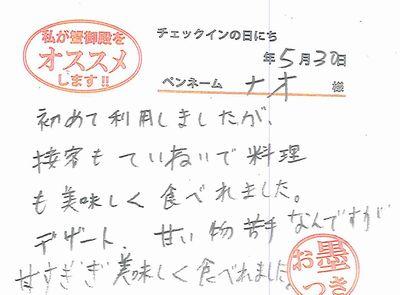 私が蟹御殿を
オススメ
します!!
チェックインの日にち
年5月30日
ペンネーム ナオ 様
初めて利用しましたが、
接客もていねいで料理
も美味しく食べれました。
デザート、甘い物苦手なんですが
甘すぎず美味しく食べれました。
お墨
つき